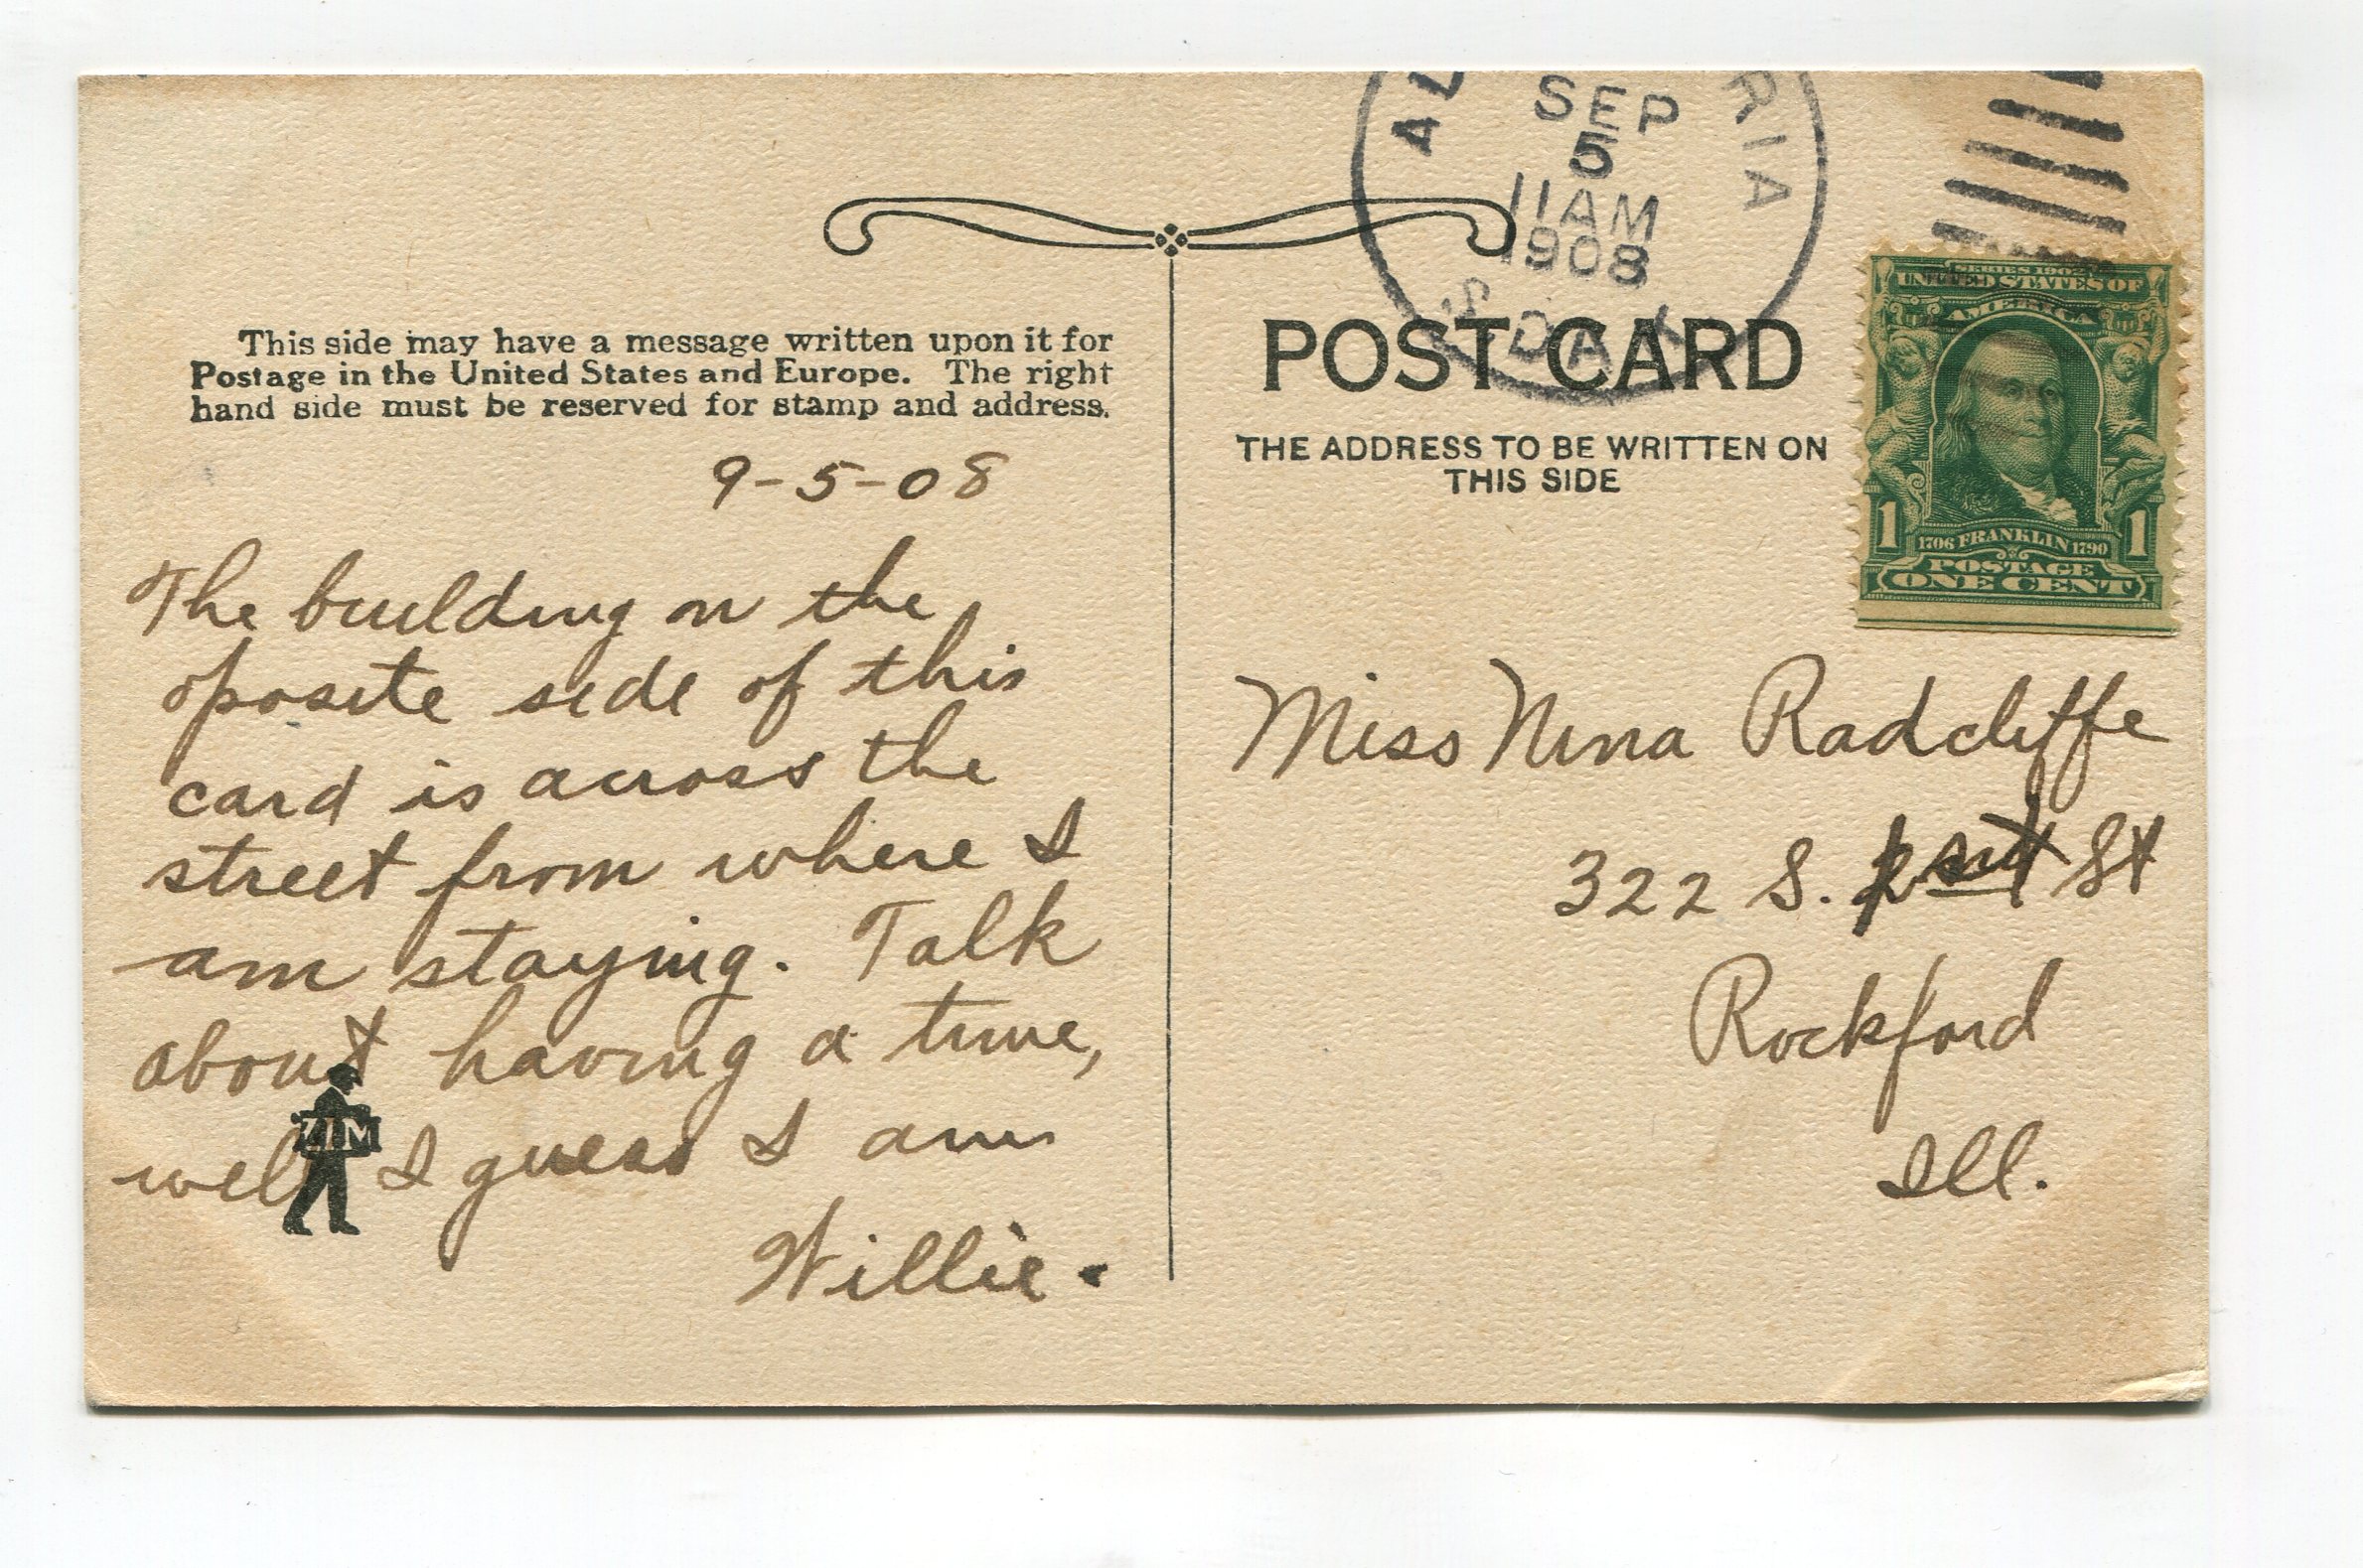 AL RIA
SEP
5
11 AM
1908
S. DAK.
This side may have a message written upon it for
Postage in the United States and Europe. The right
hand side must be reserved for stamp and address.
POST CARD
THE ADDRESS TO BE WRITTEN ON
THIS SIDE
SERIES 1902
UNITED STATES OF
AMERICA
1 1
1706 FRANKLIN 1790
POSTAGE
ONE CENT
9-5-08
The building on the
oposite side of this
card is across the
street from where I
am staying. Talk
about having a time,
well I guess I am
Willie.
ZIM
Miss Nina Radcliffe
322 S. St
Rockford
Ill.